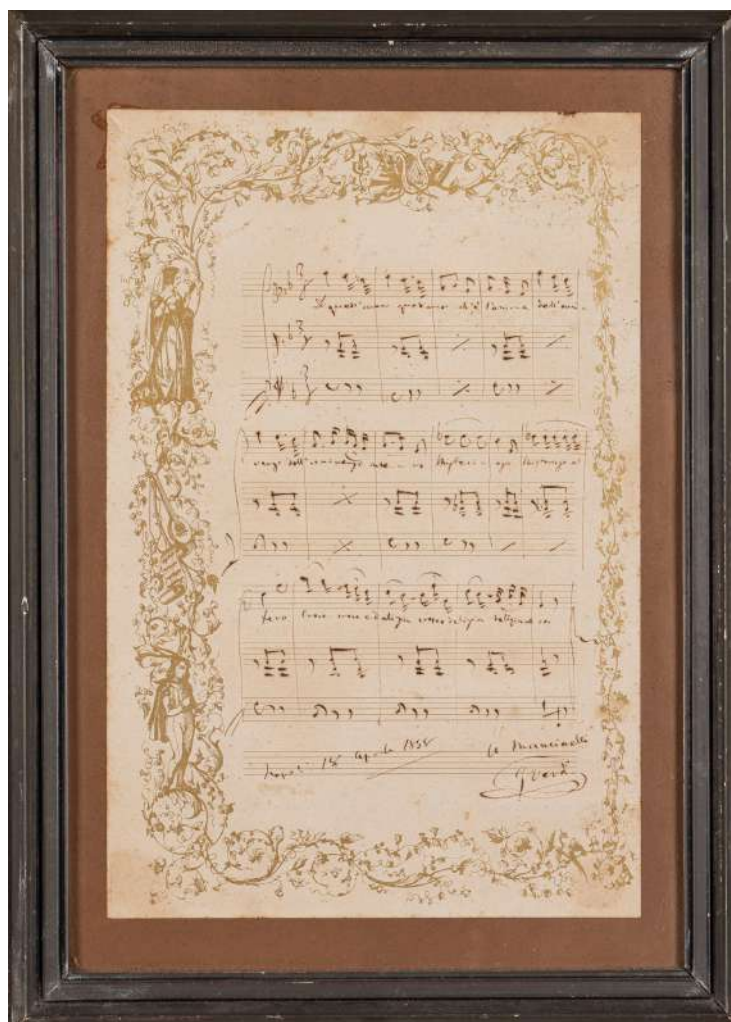 Di quell'amor quell'amor ch'è l'anima dell'uni-
verso dell'universo inte - ro Misterio - so Misterioso al
tero Croce croce e delizia croce e delizia delizia al cor
Napoli 18 Aprile 1858
G Verdi